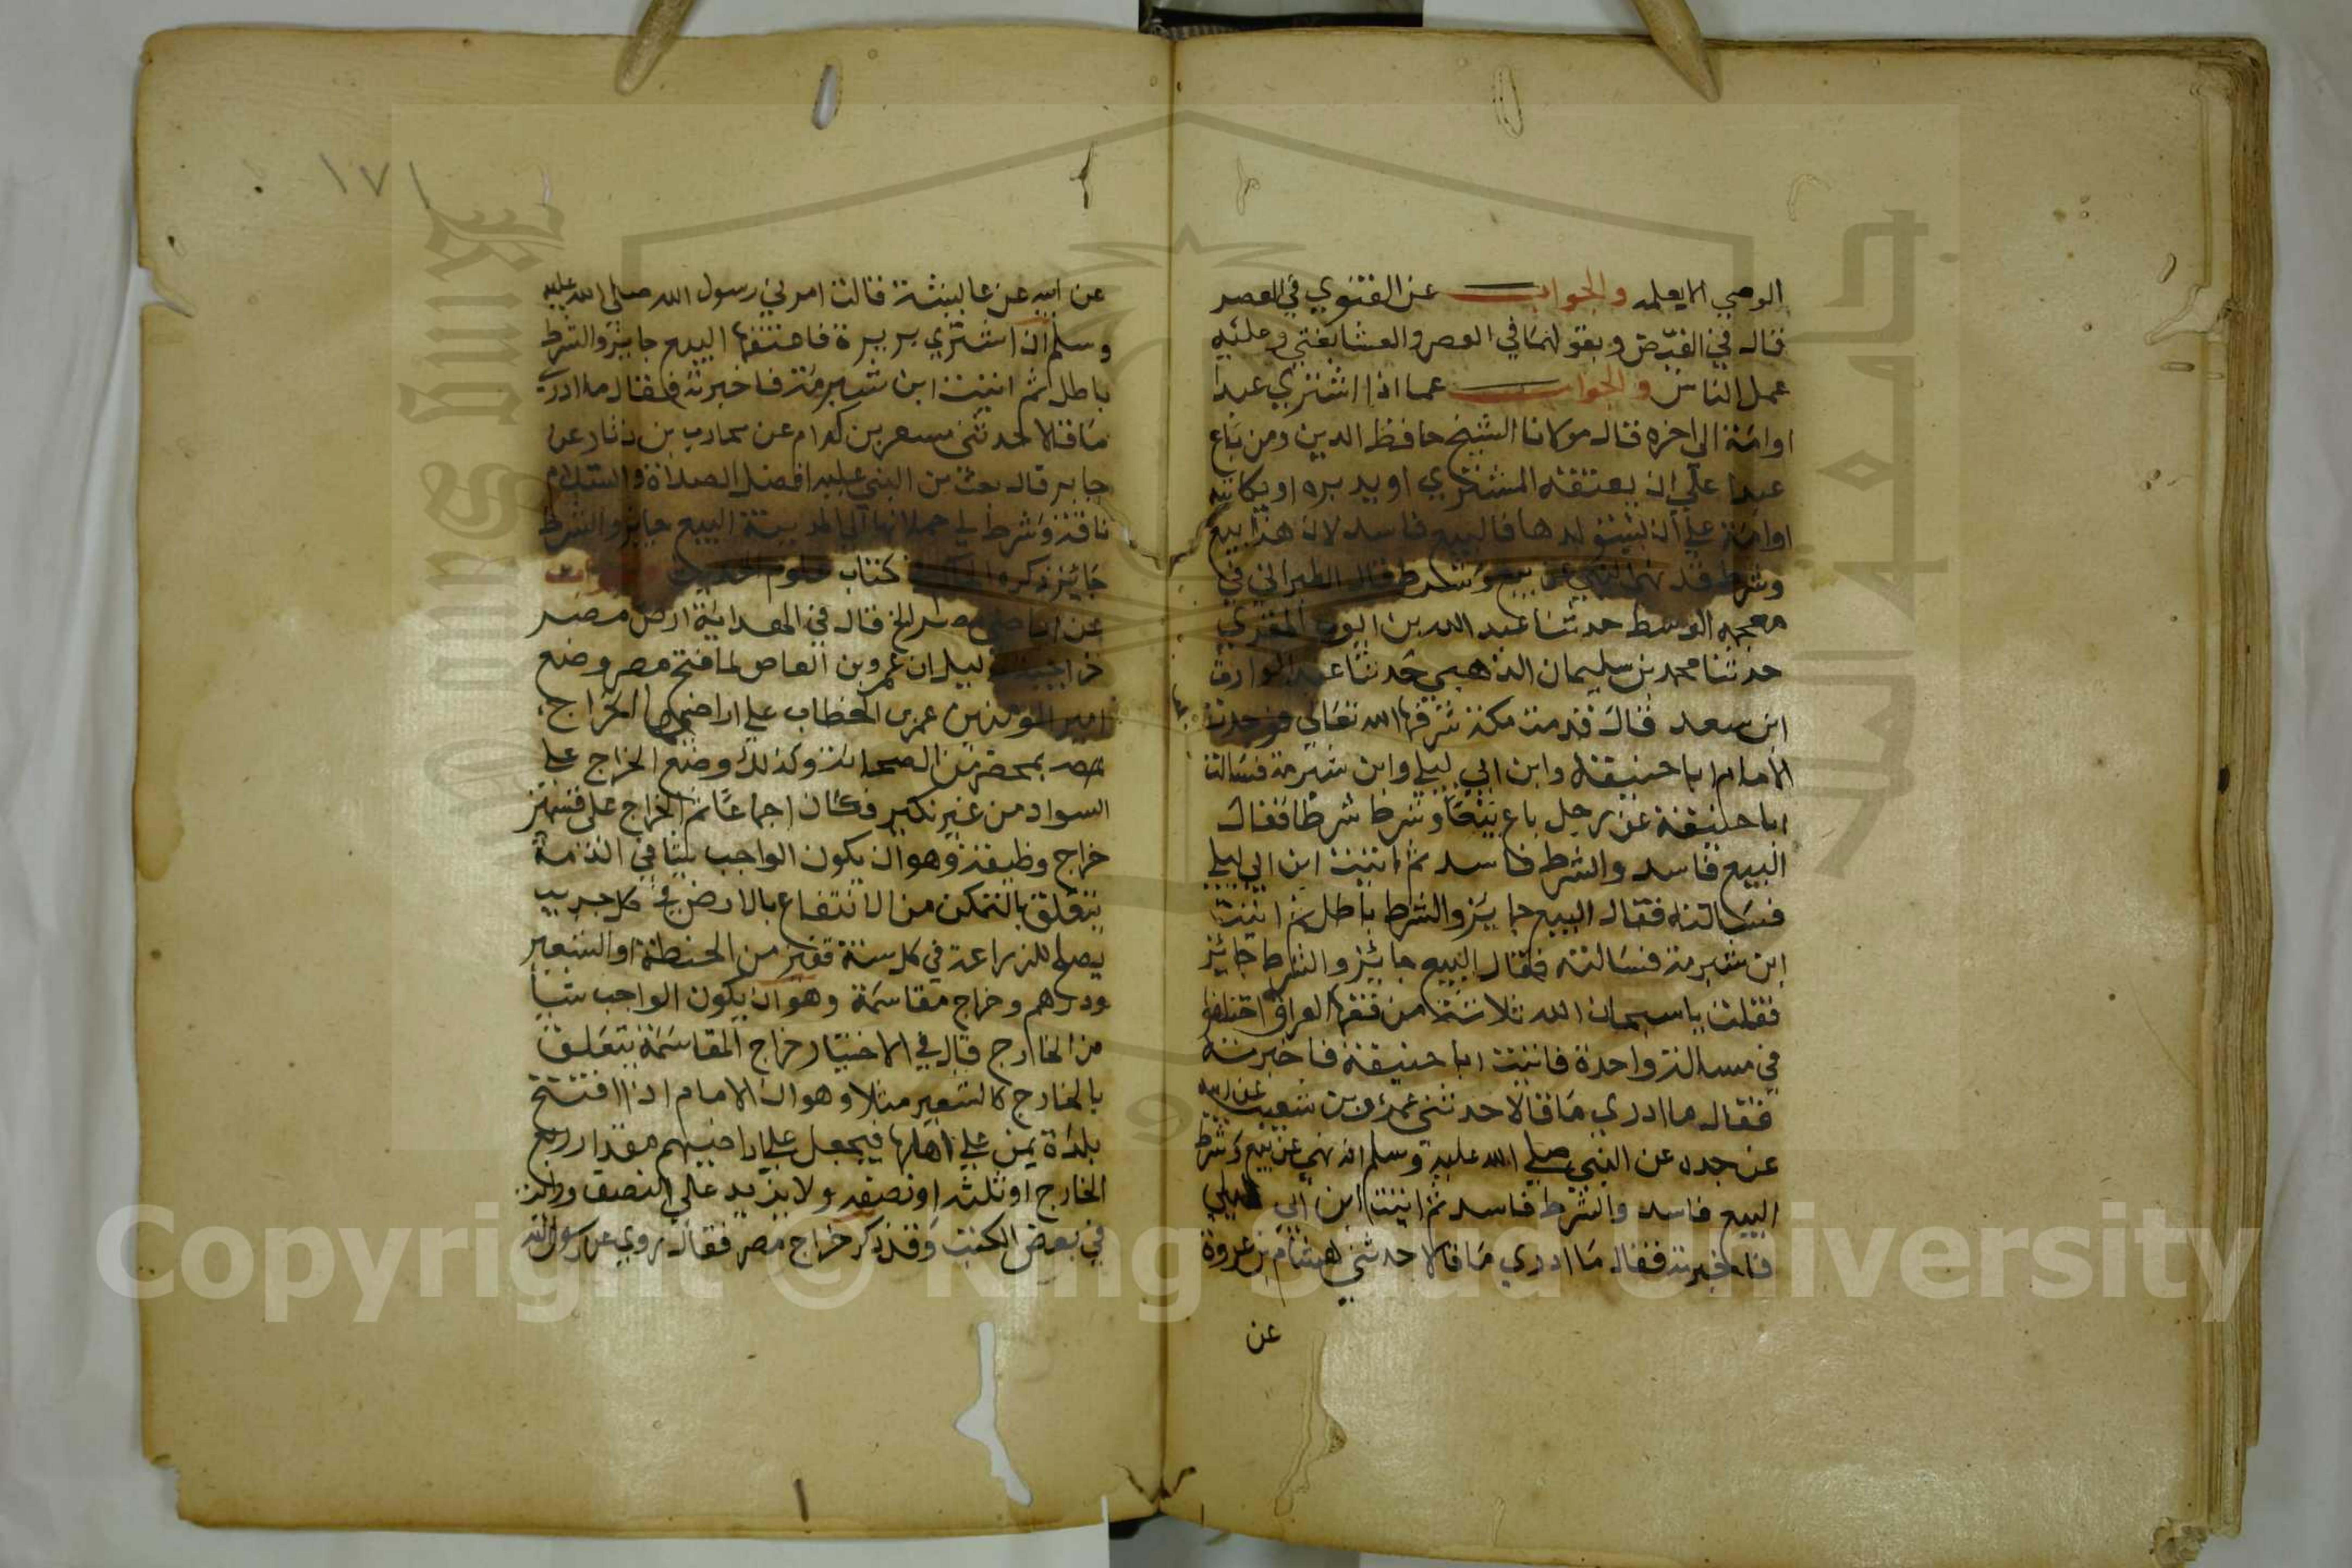 الوصي الا يعلمه والجواب عن الفتوي في العصر
قال في الفيض وبقولهما في العصر والعشا يفتي وعليه
عمل الناس والجواب عما اذا اشتري عبدا
اوامة الي اخره قال مولانا الشيخ حافظ الدين ومن باع
عبدا علي ان يعتقه المشتري او يدبره او يكاتبه
اوامة علي ان يستولدها فالبيع فاسد لان هذا بيع
وشرط قد نهي النبي عن بيع وشرط قال الطبراني في
معجمه الوسط حدثنا عبد الله بن ايوب المقري
حدثنا محمد بن سليمان الذهبي حدثنا عبد الوارث
ابن سعد قال قدمت مكة شرفها الله تعالي فوجدت
الامام ابا حنيفة وابن ابي ليلي وابن شبرمة فسالت
ابا حنيفة عن رجل باع بيعا وشرط شرطا فقال
البيع فاسد والشرط فاسد ثم اتيت ابن ابي ليلي
فسالته فقال البيع جايز والشرط باطل ثم اتيت
ابن شبرمة فسالته فقال البيع جائز والشرط جائز
فقلت يا سبحان الله ثلاثة من فقها العراق اختلفوا
في مسالة واحدة فاتيت ابا حنيفة فاخبرته
فقال ما ادري ما قالا حدثني عمرو بن شعيب عن ابيه
عن جده عن النبي صلي الله عليه وسلم انه نهي عن بيع وشرط
البيع فاسد والشرط فاسد ثم اتيت ابن ابي ليلي
فاخبرته فقال ما ادري ما قالا حدثني هشام بن عروة
عن
١٧١
عن ابيه عن عايشة قالت امرني رسول الله صلي الله عليه
وسلم ان اشتري بريرة فاعتقها البيع جايز والشرط
باطل ثم اتيت ابن شبرمة فاخبرته فقال ما ادري
ما قالا حدثني مسعر بن كدام عن محارب بن دثار عن
جابر قال بعت من النبي عليه افضل الصلاة والسلام
ناقة وشرط لي حملانها الي المدينة البيع جايز والشرط
جائز ذكره الحاكم كتاب علوم الحديث
عن اراضي مصر الخ قال في الهداية ارض مصر
خراجية لان عمرو بن العاص لما فتح مصر وضع
امير المومنين عمر الخطاب علي اراضيها الخراج
مصر بمحضر من الصحابة وكذلك وضع الخراج علي
السواد من غير نكير فكان اجماعا ثم الخراج علي قسمين
خراج وظيفة وهو ان يكون الواجب شيا في الذمة
يتعلق بالتمكن من الانتفاع بالارض في كل جريب
يصلح للزراعة في كل سنة قفيز من الحنطة او الشعير
ودرهم وخراج مقاسمة وهو ان يكون الواجب شيا
من الخارج قال في الاختيار خراج المقاسمة يتعلق
بالخارج كالشعير مثلا وهو ان الامام اذا افتتح
بلدة يمن علي اهلها فيجعل علي اراضيهم مقدار ربع
الخارج او ثلثه او نصفه ولا يزيد علي النصف
في بعض الكتب وقد ذكر خراج مصر فقال روي عن رسول الله
Copyright © King Saud University